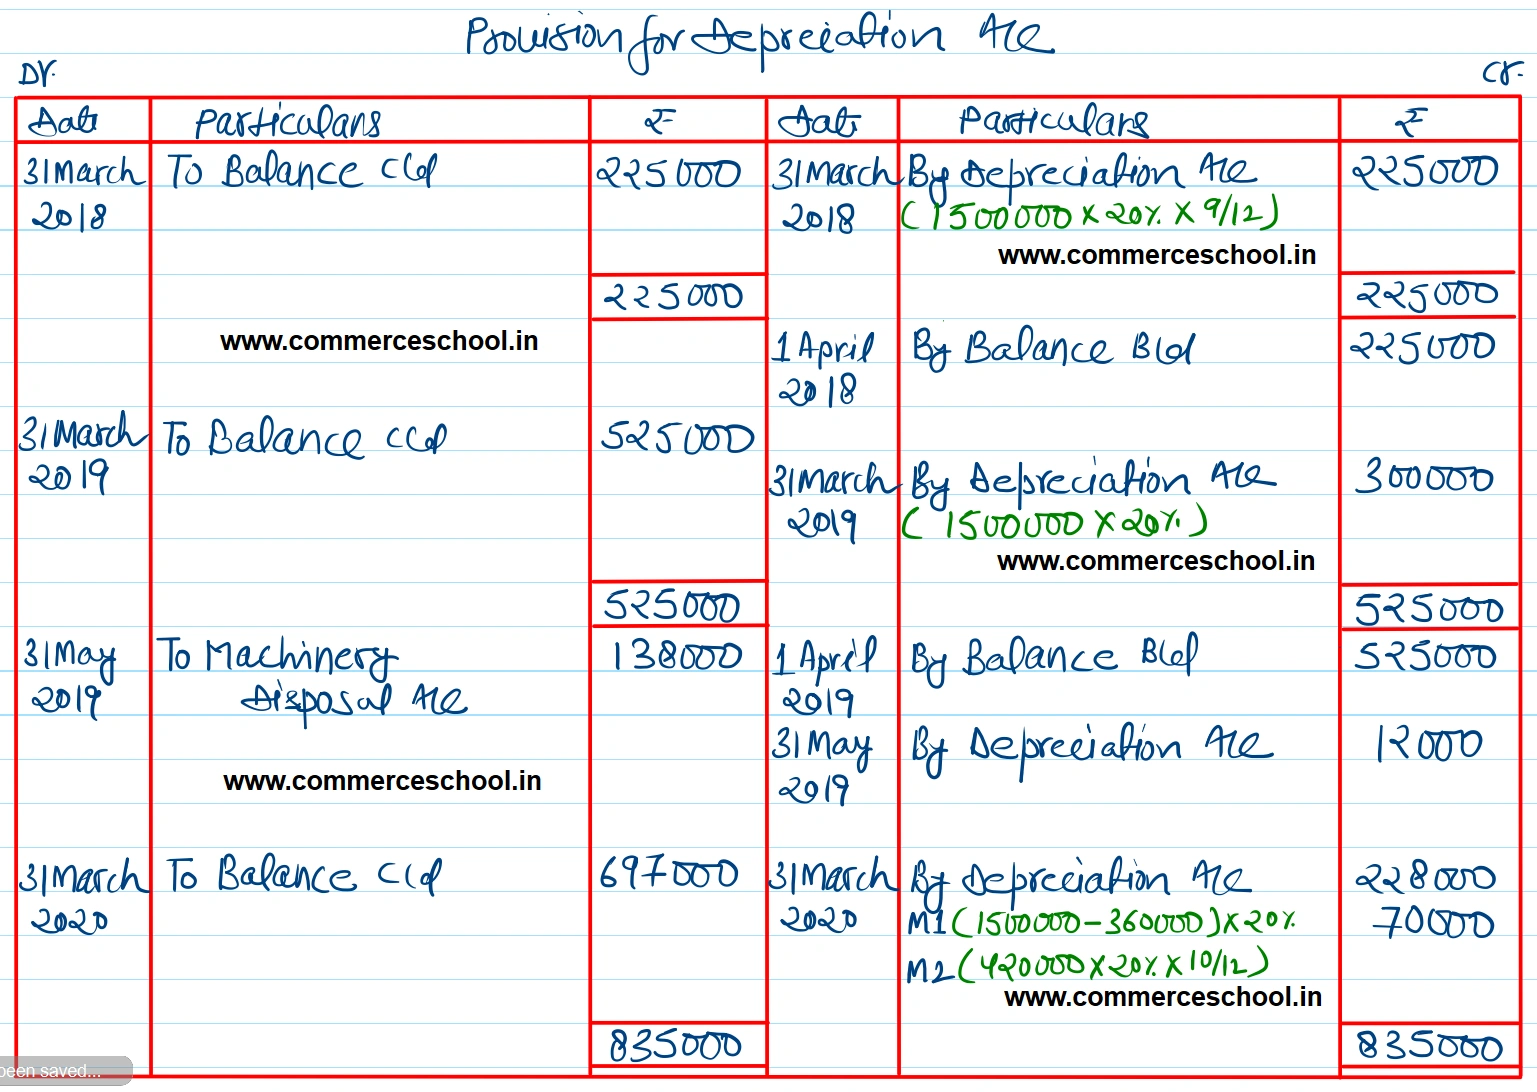 Provision for Depreciation A/c
Dr. Cr.
Date Particulars ₹ Date Particulars ₹
31 March To Balance C/d 225000 31 March By Depreciation A/c 225000
2018 2018 (1500000 × 20% × 9/12)
www.commerceschool.in
225000 225000
www.commerceschool.in 1 April By Balance B/d 225000
2018
31 March To Balance C/d 525000
2019 31 March By Depreciation A/c 300000
2019 (1500000 × 20%)
www.commerceschool.in
525000 525000
31 May To Machinery 138000 1 April By Balance B/d 525000
2019 Disposal A/c 2019
31 May By Depreciation A/c 12000
www.commerceschool.in 2019
31 March To Balance C/d 697000 31 March By Depreciation A/c 228000
2020 2020 M1 (1500000 - 360000) × 20% 70000
M2 (420000 × 20% × 10/12)
www.commerceschool.in
835000 835000
been saved...